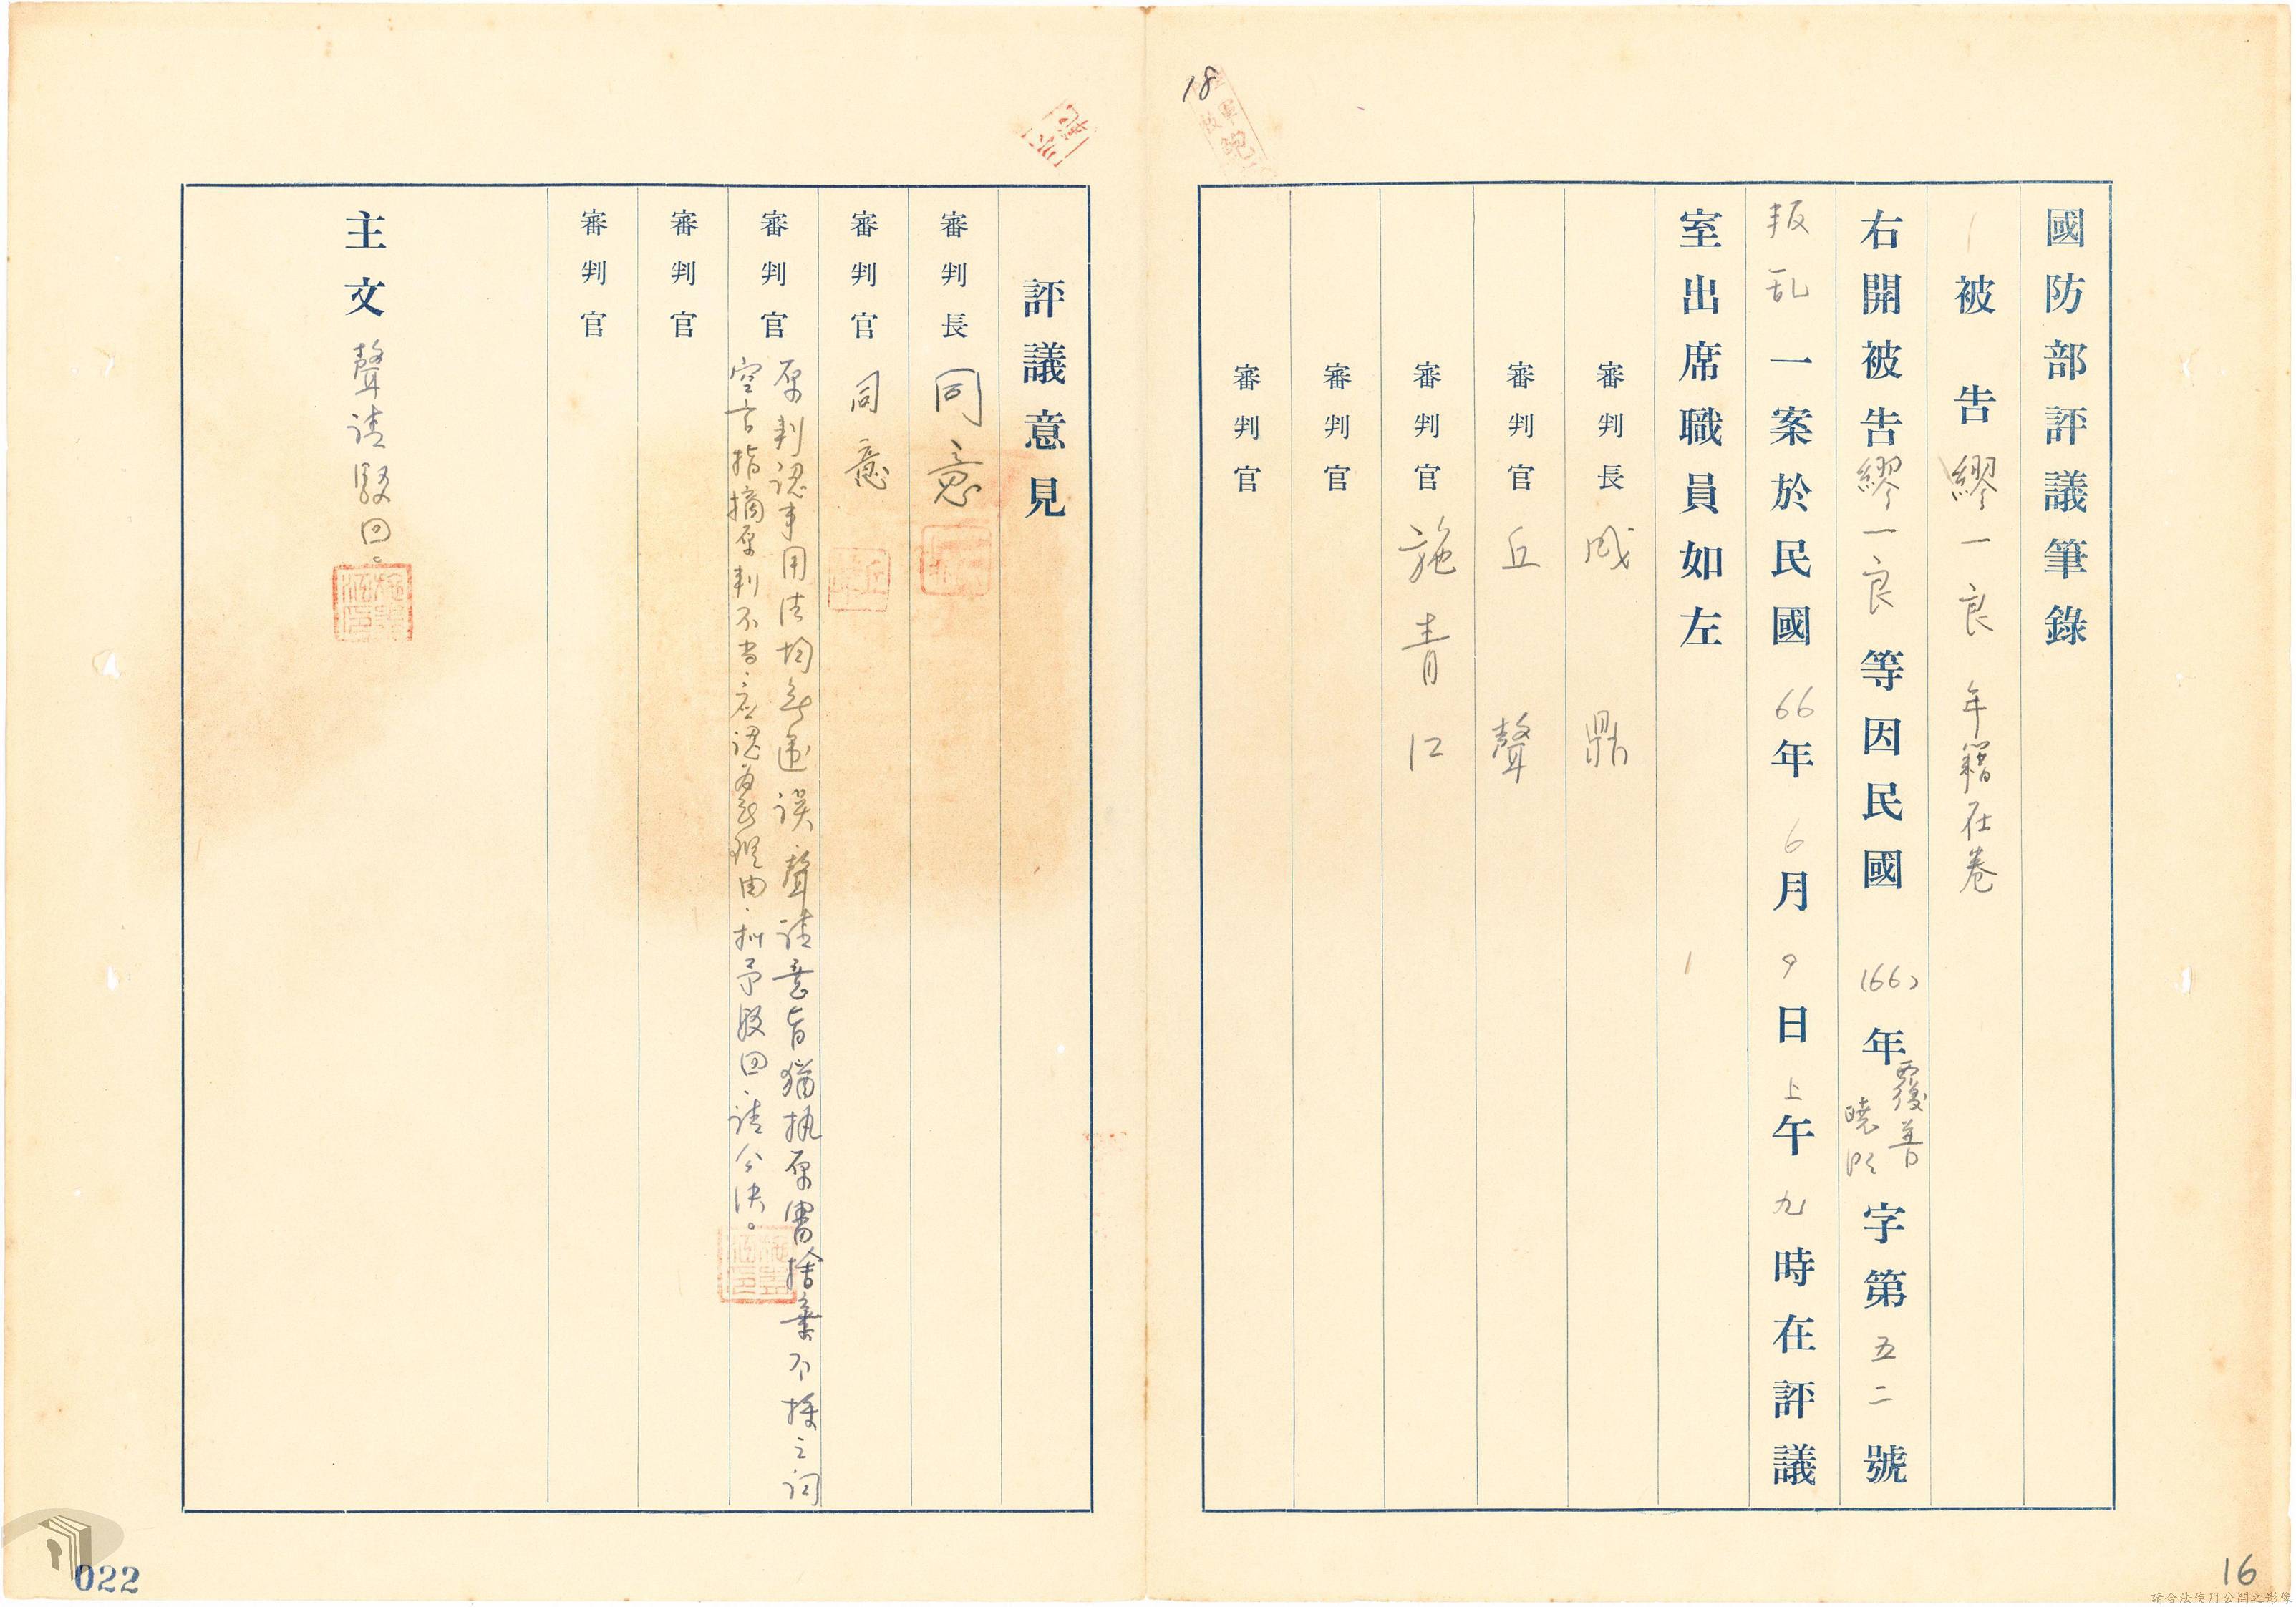 18
國防部評議筆錄
被告繆一良年籍在卷
右開被告繆一良等因民國(66)年覆普曉字第五二號
叛乱一案於民國66年6月9日上午九時在評議
室出席職員如左
審判長成鼎
審判官丘聲
審判官施青江
審判官
審判官
16
評議意見
審判長同意
審判官同意
審判官原判認事用法均無違誤、聲請意旨猶執原審捨棄不採之詞
空言指摘原判不當、應認為無理由、擬予駁回、請公決。
審判官
審判官
主文聲請駁回。
022
請合法使用公開之影像